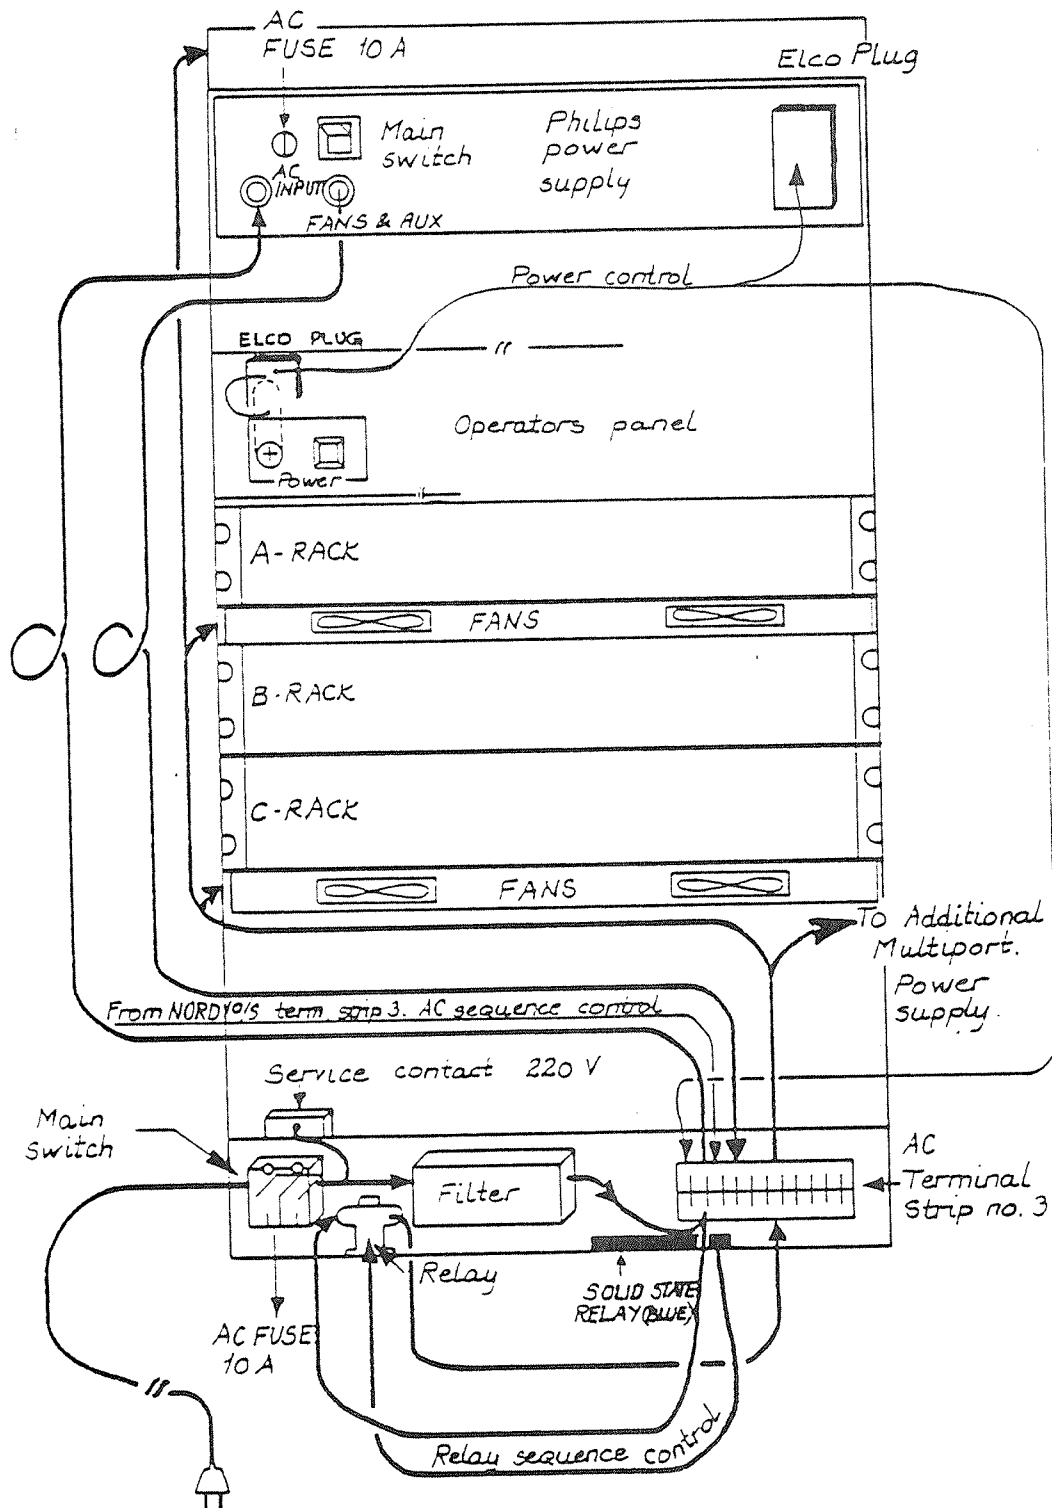 AC
FUSE 10 A
Elco Plug
Main
switch
Philips
power
supply
AC
INPUT
FANS & AUX
Power control
ELCO PLUG
Operators panel
Power
A-RACK
FANS
B-RACK
C-RACK
FANS
To Additional
Multiport.
Power
supply.
term strip 3. AC sequence control
Service contact 220 V
Main
Switch
AC
Terminal
Strip no. 3
Filter
Relay
SOLID STATE
RELAY (BLUE)
AC FUSE
10 A
Relay sequence control